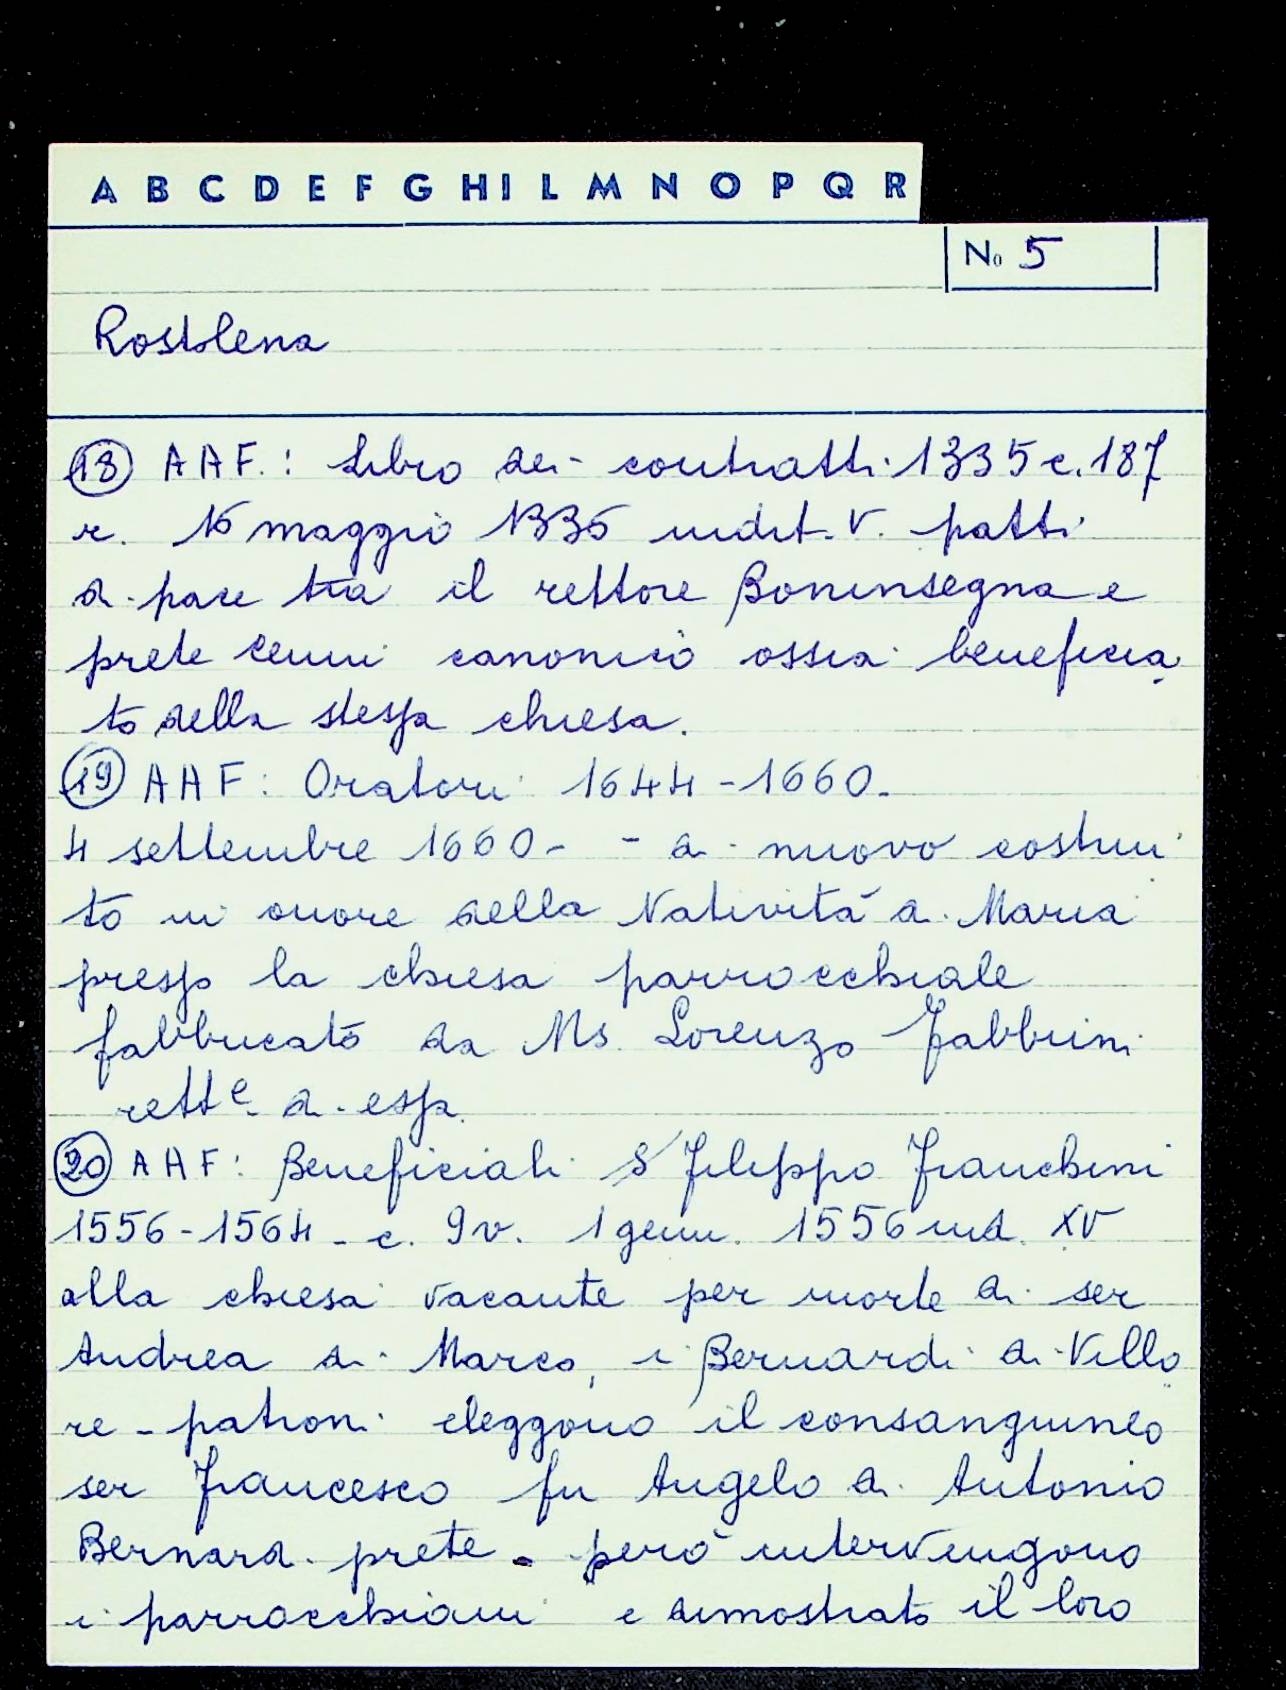 A B C D E F G H I L M N O P Q R
No 5
Rostolena
18 AAF.: Libro dei contratti 1335 c. 187
r. 16 maggio 1335 indit. V. patti
di pace tra il rettore Boninsegna e
prete Cenni canonico ossia beneficia
to della stessa chiesa.
19 AAF: Oratori 1644-1660.
4 settembre 1660 - - di nuovo costrui
to in onore della Natività di Maria
presso la chiesa parrocchiale
fabbricato da Ms. Lorenzo Fabbrini
rett.e di essa.
20 AAF: Beneficiali S Filippo Franchini
1556-1564 - c. 9v. 1 genn. 1556 ind. XV
alla chiesa vacante per morte di ser
Andrea di Marco, i Bernardi di Villo
re - patroni eleggono il consanguineo
ser Francesco fu Angelo di Antonio
Bernardi prete - però intervengono
i parrocchiani e dimostrato il loro